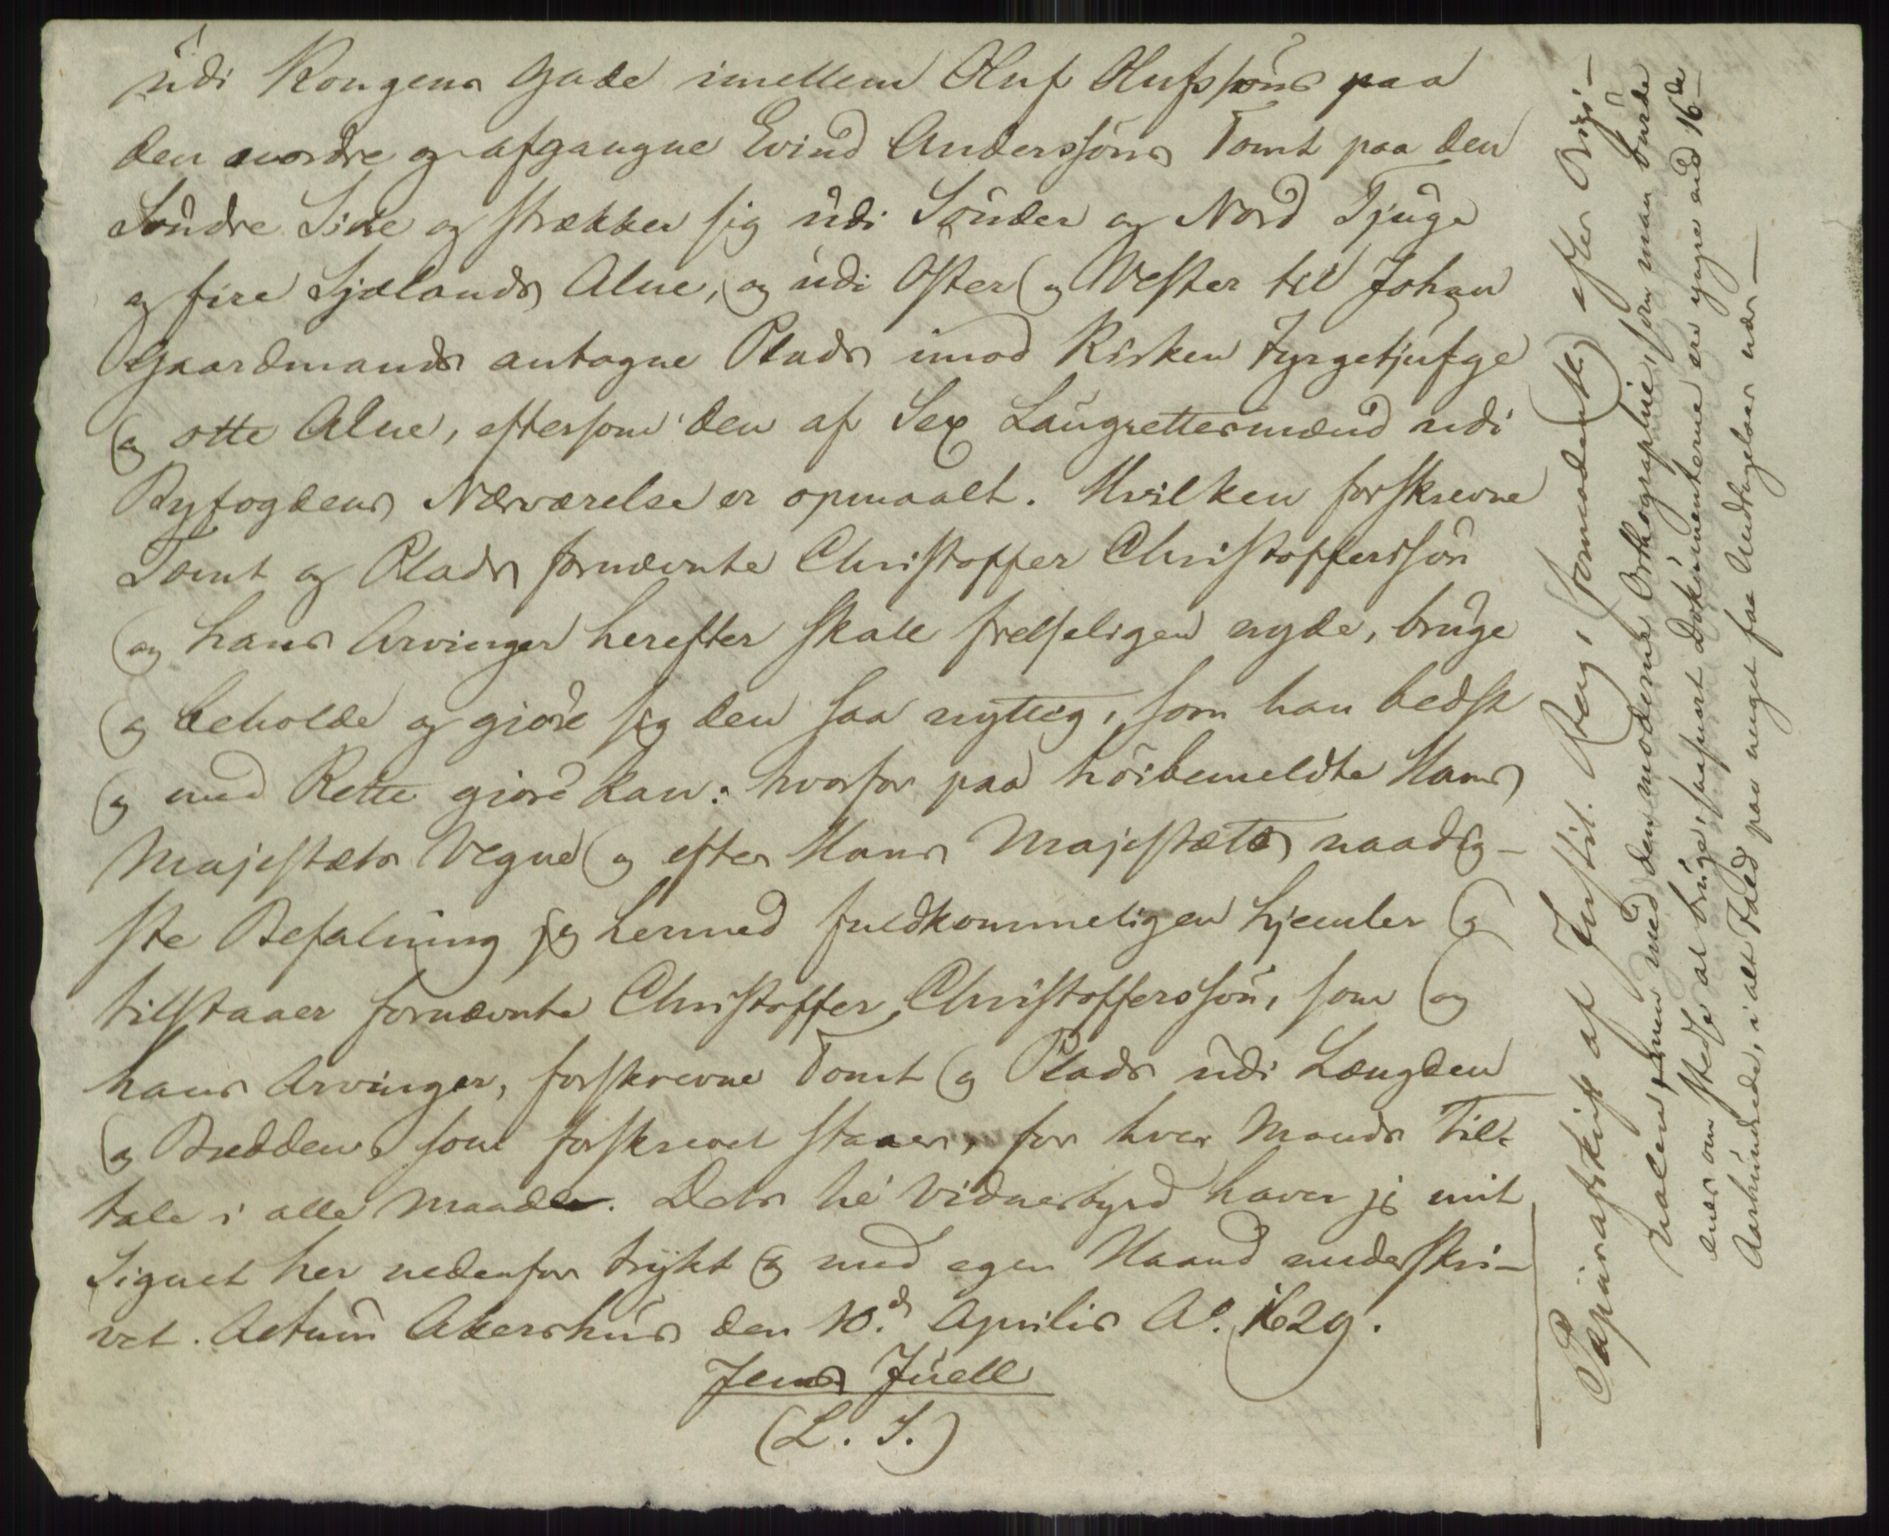 udi Kongens Gade imellem Oluf Olufssöns paa
den nordre og afgangne Evind Anderssöns Tomt paa den
Söndre Side og strækker sig udi Sönder og Nord Tjuge
og fire Sjælands Alne, og udi Öster og Vester til Johan
Gaardmands antagne Plads imod Kirken Fyrgetjufge
og otte Alne, eftersom den af Sex Laugrettesmænd udi
Byfogdens Nærværelse er opmaalt. Hvilken forskrevne
Tomt og Plads fornævnte Christoffer Christofferssön
og hans Arvinger herefter skall frelseligen nyde, bruge
og beholde og giöre sig den saa nyttig, som han bedst
og med Rette giöre kan: hvorfor paa höibemeldte Hans
Majestæts Vegne og efter Hans Majestæts naadig-
ste Befalning jeg hermed fuldkommeligen hjemler og
tilstaaer fornævnte Christoffer Christofferssön, som og
hans Arvinger, forskrevne Tomt og Plads udi Længden
og Bredden, som forskrevet staaer, for hver Mands Til-
tale i alle Maader. Dets til Vidnesbyrd haver jeg mit
Signet her nedenfor trykt og med egen Haand underskri-
vet. Actum Akershus den 10.d Aprilis A°. 1629.
Jens Juell
(L. S.)
Papirafskrift af Justit. Aag, formodentlig efter Origi-
nalen, men med den moderne Orthographie, som man burde
ener om stedse at bruge, saasnart Dokumenterne ere yngre end 16de
Aarhundrede, i alt Fald paa noget faa Undtagelser nær